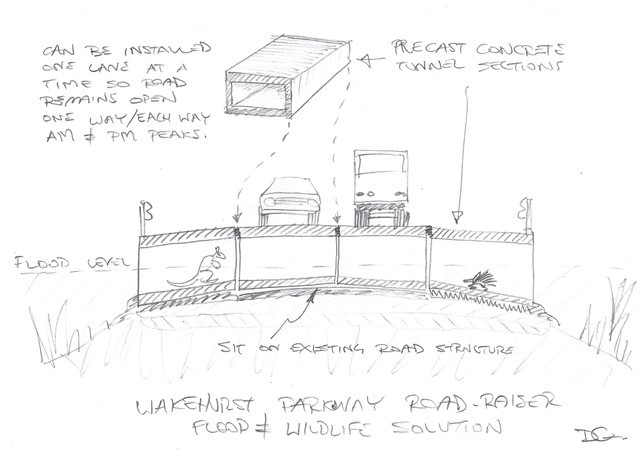 CAN BE INSTALLED
ONE LANE AT A
TIME SO ROAD
REMAINS OPEN
ONE WAY/EACH WAY
AM & PM PEAKS.
PRECAST CONCRETE
TUNNEL SECTIONS
FLOOD LEVEL
SIT ON EXISTING ROAD STRUCTURE
WAKEHURST PARKWAY ROAD-RAISER
FLOOD & WILDLIFE SOLUTION
DG.